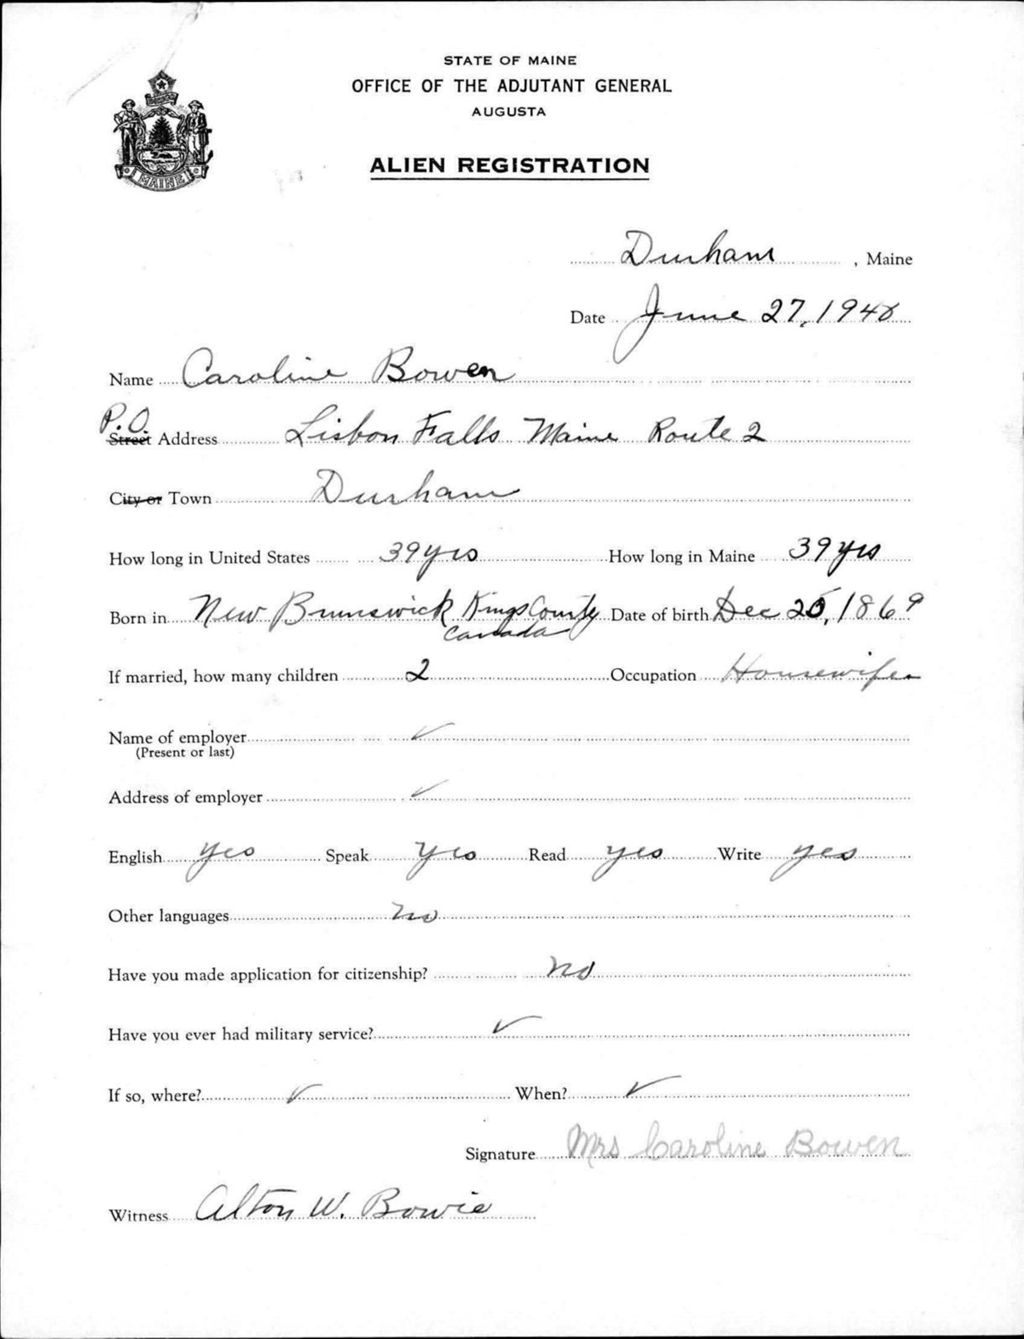 STATE OF MAINE
OFFICE OF THE ADJUTANT GENERAL
AUGUSTA
MAINE
ALIEN REGISTRATION
Durham, Maine
Date June 27, 1940
Name Caroline Bowen
P.O.
Street Address Lisbon Falls Maine Route 2
City or Town Durham
How long in United States 39 yrs How long in Maine 39 yrs
Born in New Brunswick Kings County Date of birth Dec 25, 1869
Canada
If married, how many children 2 Occupation Housewife
Name of employer ✓
(Present or last)
Address of employer ✓
English yes Speak yes Read yes Write yes
Other languages no
Have you made application for citizenship? no
Have you ever had military service? ✓
If so, where? ✓ When? ✓
Signature Mrs Caroline Bowen
Witness Alton W. Bowie